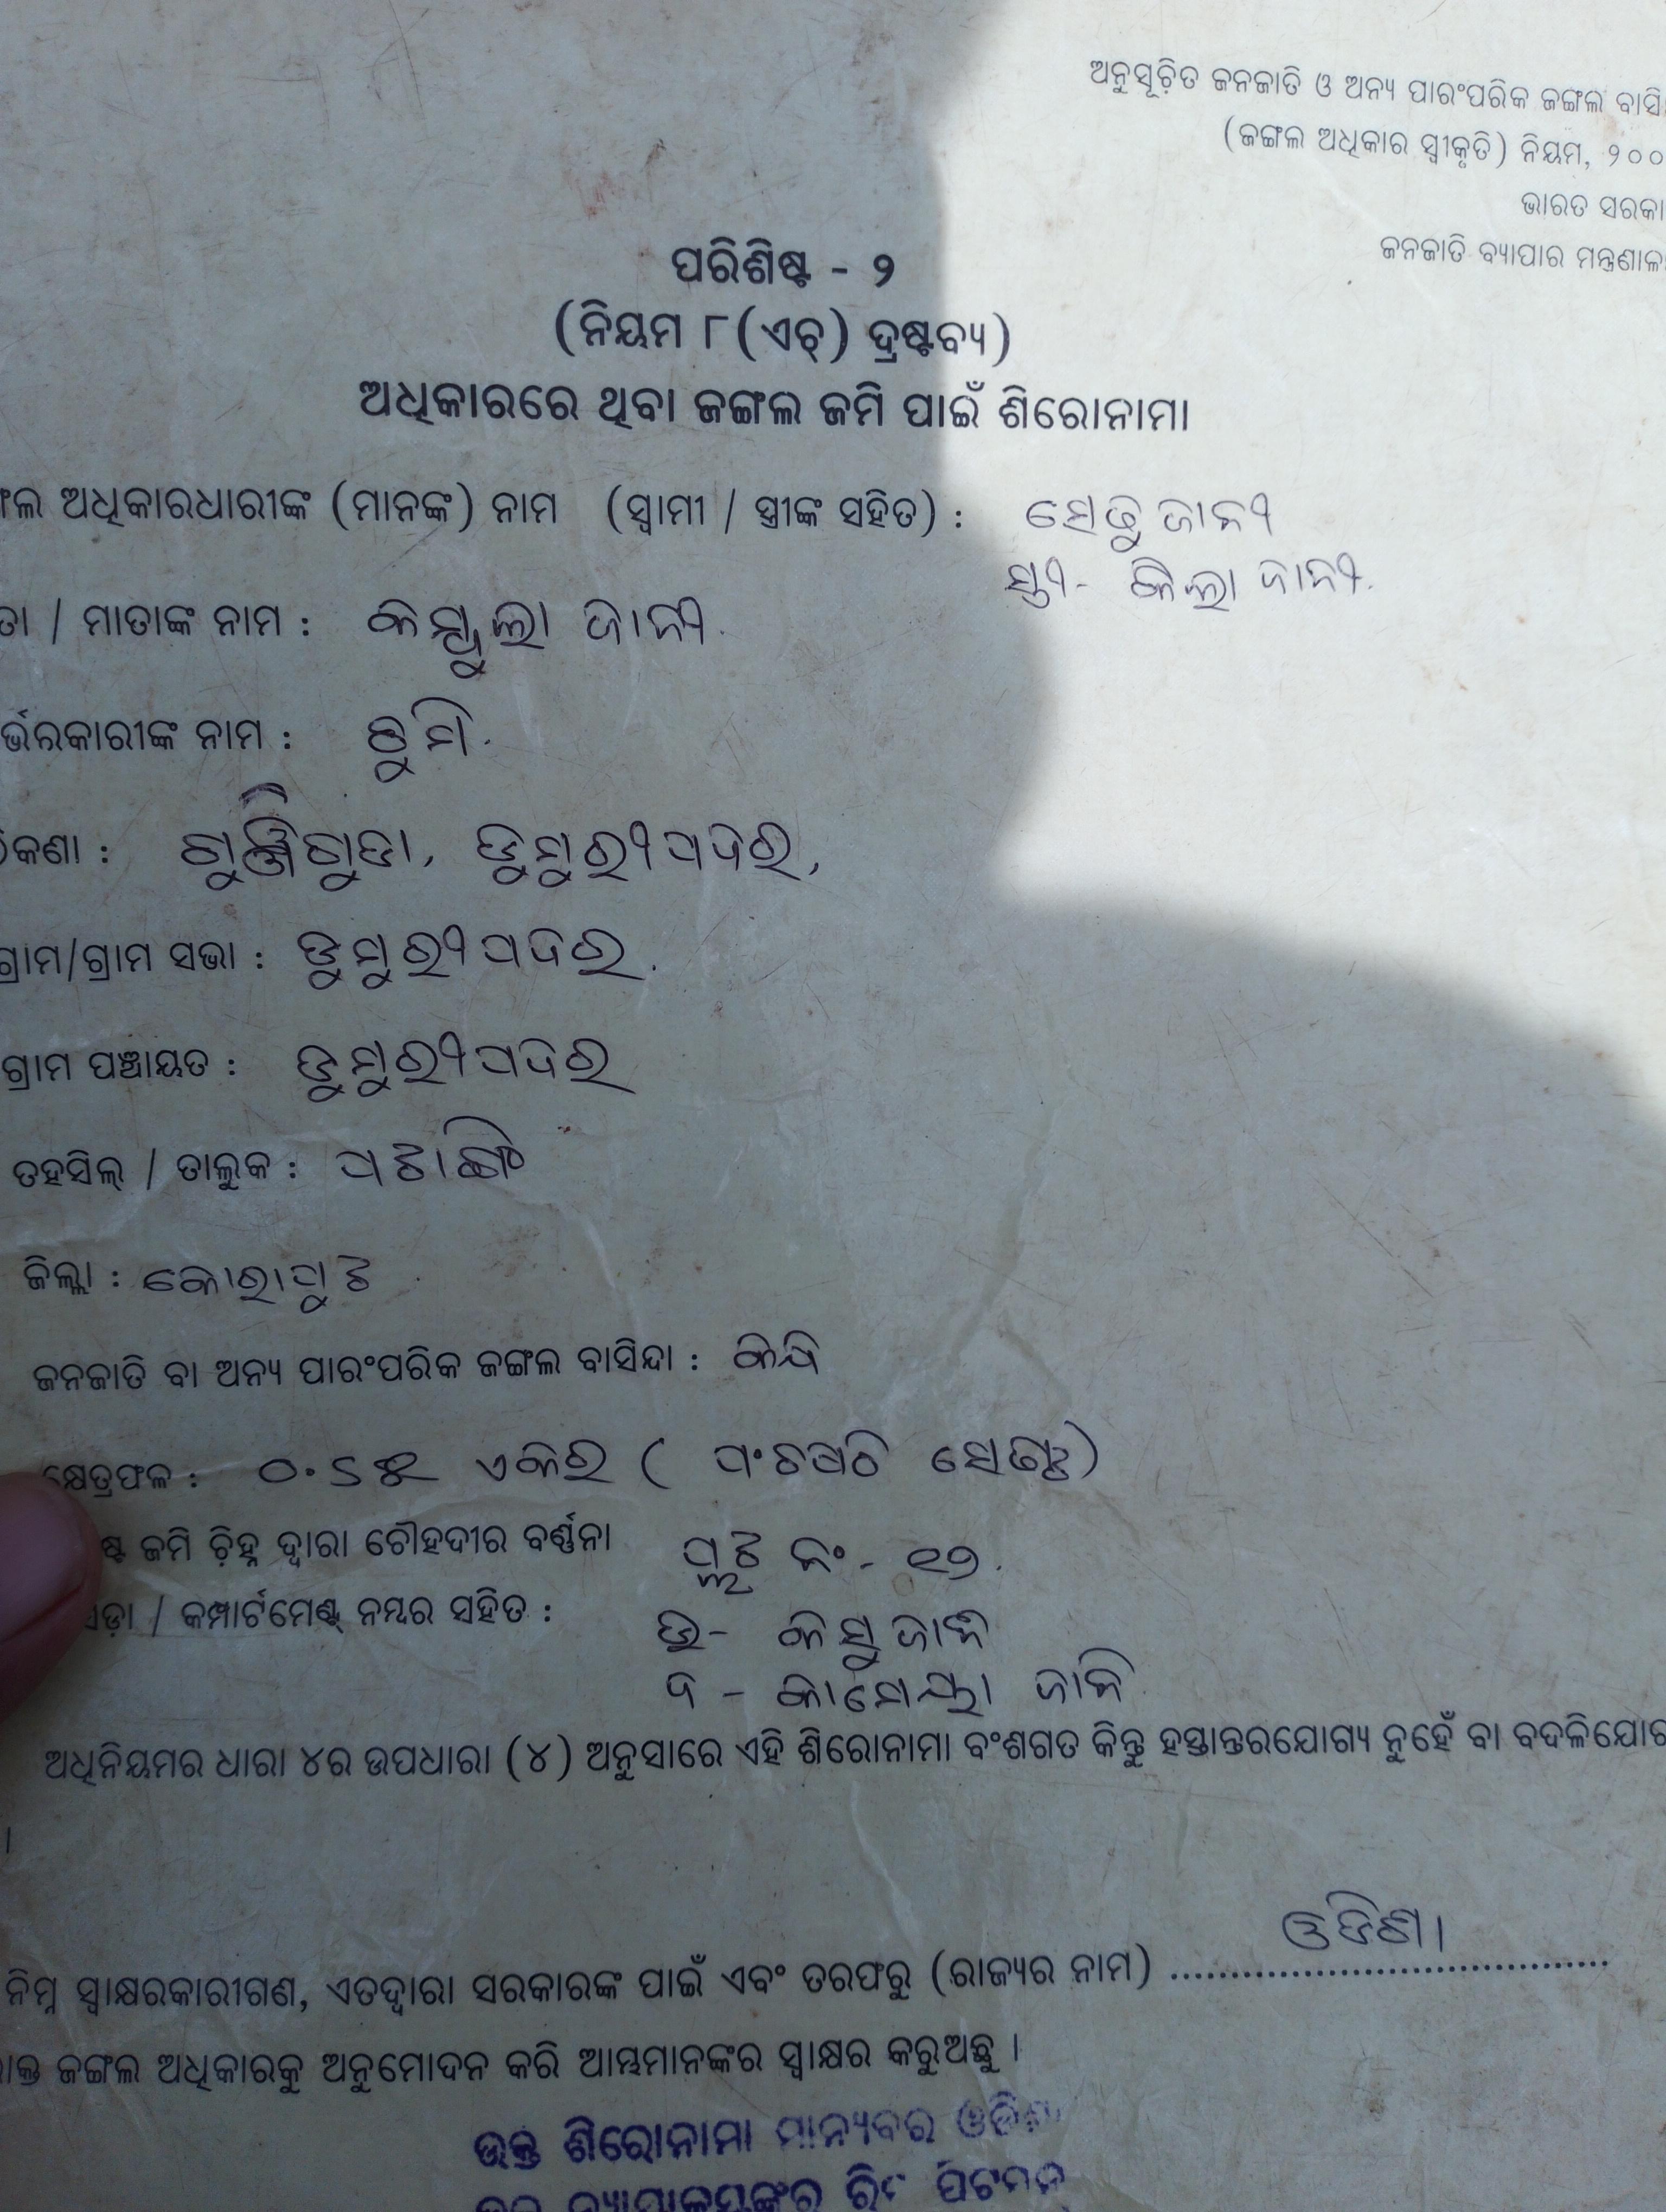 ଅନୁସୂଚିତ ଜନଜାତି ଓ ଅନ୍ୟ ପାରଂପରିକ ଜଙ୍ଗଲ ବାସି
(ଜଙ୍ଗଲ ଅଧିକାର ସ୍ୱୀକୃତି) ନିୟମ, ୨୦୦
ଭାରତ ସରକା
ଜନଜାତି ବ୍ୟାପାର ମନ୍ତ୍ରଣାଳ
ପରିଶିଷ୍ଟ - ୨
(ନିୟମ ୮(ଏଚ୍) ଦ୍ରଷ୍ଟବ୍ୟ)
ଅଧିକାରରେ ଥିବା ଜଙ୍ଗଲ ଜମି ପାଇଁ ଶିରୋନାମା
ଙ୍ଗଲ ଅଧିକାରଧାରୀଙ୍କ (ମାନଙ୍କ) ନାମ (ସ୍ୱାମୀ / ସ୍ତ୍ରୀଙ୍କ ସହିତ) : ଜାନୀ
ସ୍ତ୍ରୀ- ଜାନୀ.
ତା / ମାତାଙ୍କ ନାମ : ଜାନୀ.
ର୍ଭରକାରୀଙ୍କ ନାମ :
ଠିକଣା : ଡୁମୁରୀପଦର,
ଗ୍ରାମ/ଗ୍ରାମ ସଭା : ଡୁମୁରୀପଦର.
ଗ୍ରାମ ପଞ୍ଚାୟତ : ଡୁମୁରୀପଦର
ତହସିଲ୍ / ତାଲୁକ : ପଟାଙ୍ଗି
ଜିଲ୍ଲା : କୋରାପୁଟ
ଜନଜାତି ବା ଅନ୍ୟ ପାରଂପରିକ ଜଙ୍ଗଲ ବାସିନ୍ଦା :
କ୍ଷେତ୍ରଫଳ : ୦.୬୫ ଏକର ( ପଂଚଷଠି ସେଣ୍ଟ)
ଷ୍ଟ ଜମି ଚିହ୍ନ ଦ୍ୱାରା ଚୌହଦୀର ବର୍ଣ୍ଣନା ପ୍ଲଟ ନଂ - ୧୭.
ସଡ଼ା / କମ୍ପାର୍ଟମେଣ୍ଟ୍ ନମ୍ବର ସହିତ : ଉ- ଜାନି
ଦ - ଜାନି
ଅଧିନିୟମର ଧାରା ୪ର ଉପଧାରା (୪) ଅନୁସାରେ ଏହି ଶିରୋନାମା ବଂଶଗତ କିନ୍ତୁ ହସ୍ତାନ୍ତରଯୋଗ୍ୟ ନୁହେଁ ବା ବଦଳିଯୋଗ
।
ନିମ୍ନ ସ୍ୱାକ୍ଷରକାରୀଗଣ, ଏତଦ୍ୱାରା ସରକାରଙ୍କ ପାଇଁ ଏବଂ ତରଫରୁ (ରାଜ୍ୟର ନାମ) ଓଡିଶା
ାକ୍ତ ଜଙ୍ଗଲ ଅଧିକାରକୁ ଅନୁମୋଦନ କରି ଆମ୍ଭମାନଙ୍କର ସ୍ୱାକ୍ଷର କରୁଅଛୁ ।
ଉକ୍ତ ଶିରୋନାମା ମାନ୍ୟବର ଓଡିଶା